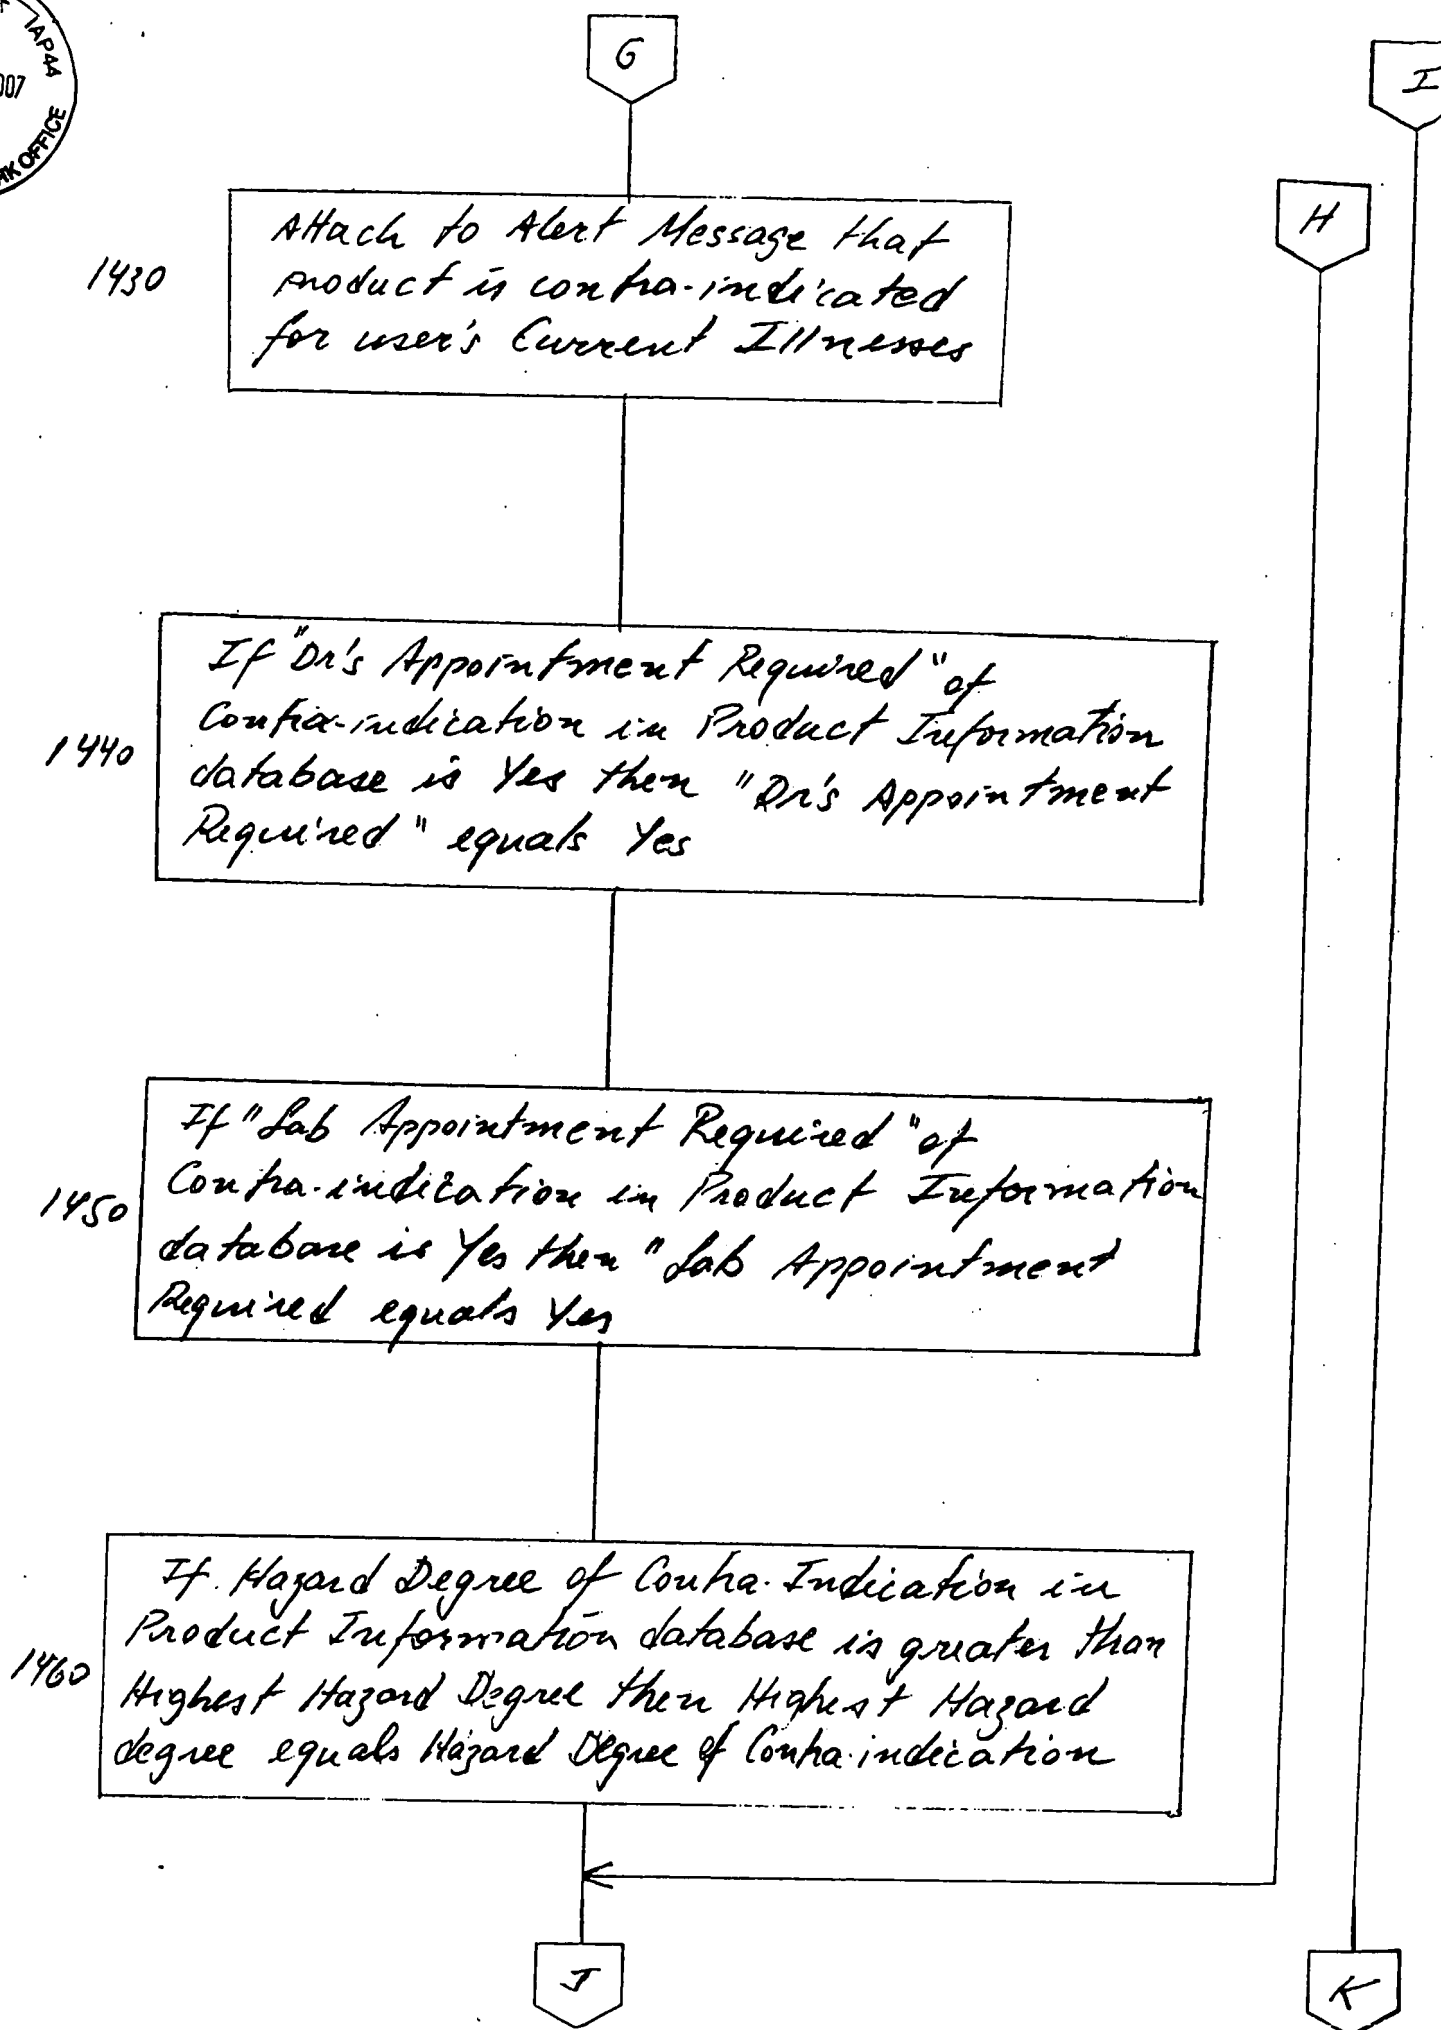 IAP44
007
RK OFFICE
G
I
H
1430
Attach to Alert Message that
product is contra-indicated
for user's Current Illnesses
1440
If "Dr's Appointment Required" of
Contra-indication in Product Information
database is Yes then "Dr's Appointment
Required" equals Yes
1450
If "Lab Appointment Required" of
Contra-indication in Product Information
database is Yes then "Lab Appointment
Required equals Yes
1460
If Hazard Degree of Contra-Indication in
Product Information database is greater than
Highest Hazard Degree then Highest Hazard
degree equals Hazard Degree of Contra-indication
J
K